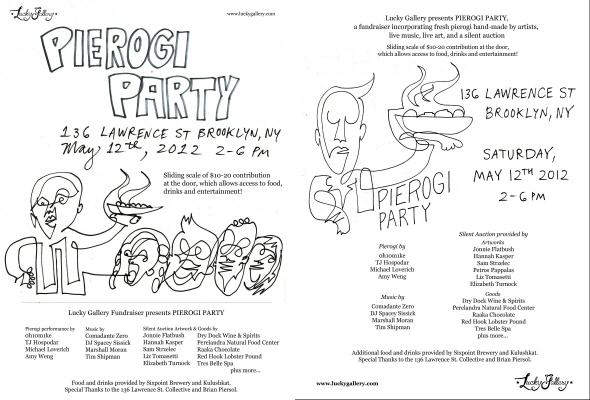 Lucky Gallery
www.luckygallery.com
PIEROGI
PARTY
136 LAWRENCE ST BROOKLYN, NY
May 12th, 2012 2-6 PM
Sliding scale of $10-20 contribution
at the door, which allows access to food,
drinks and entertainment!
Lucky Gallery Fundraiser presents PIEROGI PARTY
Pierogi performance by
oh10m1ke
TJ Hospodar
Michael Loverich
Amy Weng
Music by
Comadante Zero
DJ Spacey Sissick
Marshall Moran
Tim Shipman
Silent Auction Artwork & Goods by
Jonnie Flatbush
Hannah Kasper
Sam Strzelec
Liz Tomasetti
Elizabeth Turnock
Dry Dock Wine & Spirits
Perelandra Natural Food Center
Raaka Chocolate
Red Hook Lobster Pound
Tres Belle Spa
plus more...
Food and drinks provided by Sixpoint Brewery and Kulushkat.
Special Thanks to the 136 Lawrence St. Collective and Brian Piersol.
Lucky Gallery presents PIEROGI PARTY,
a fundraiser incorporating fresh pierogi hand-made by artists,
live music, live art, and a silent auction
Sliding scale of $10-20 contribution at the door,
which allows access to food, drinks and entertainment!
136 LAWRENCE ST
BROOKLYN, NY
SATURDAY,
MAY 12TH 2012
2-6 PM
PIEROGI
PARTY
Pierogi by
oh10m1ke
TJ Hospodar
Michael Loverich
Amy Weng
Music by
Comadante Zero
DJ Spacey Sissick
Marshall Moran
Tim Shipman
Silent Auction provided by
Artworks
Jonnie Flatbush
Hannah Kasper
Sam Strzelec
Petros Pappalas
Liz Tomasetti
Elizabeth Turnock
Goods
Dry Dock Wine & Spirits
Perelandra Natural Food Center
Raaka Chocolate
Red Hook Lobster Pound
Tres Belle Spa
plus more...
Additional food and drinks provided by Sixpoint Brewery and Kulushkat.
Special Thanks to the 136 Lawrence St. Collective and Brian Piersol.
www.luckygallery.com
Lucky Gallery